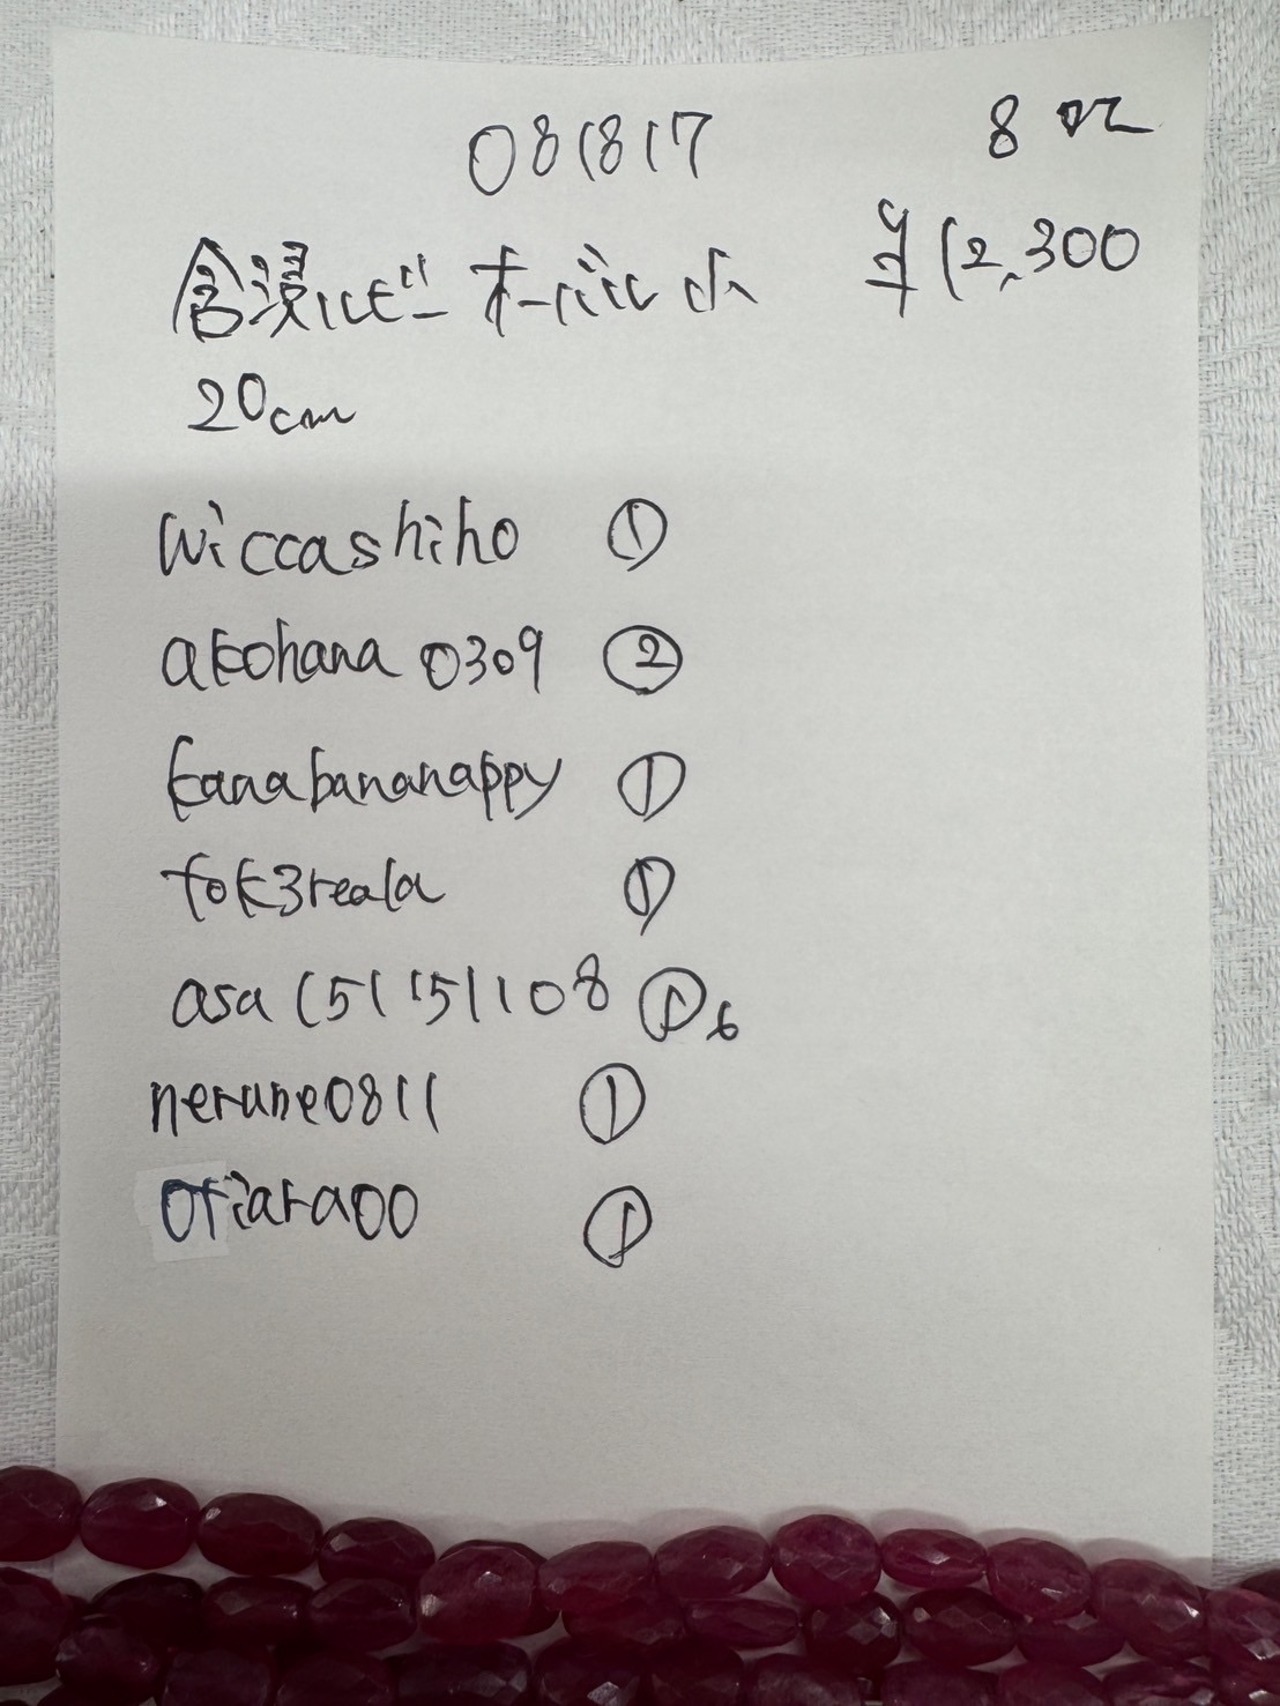 081817 8コ
含浸ルビーオーバル小 ¥12,300
20cm
wiccashiho ①
akohana0309 ②
kanabananappy ①
tok3reala ①
asa1511511108 ① 6
nerune0811 ①
otiara00 ①